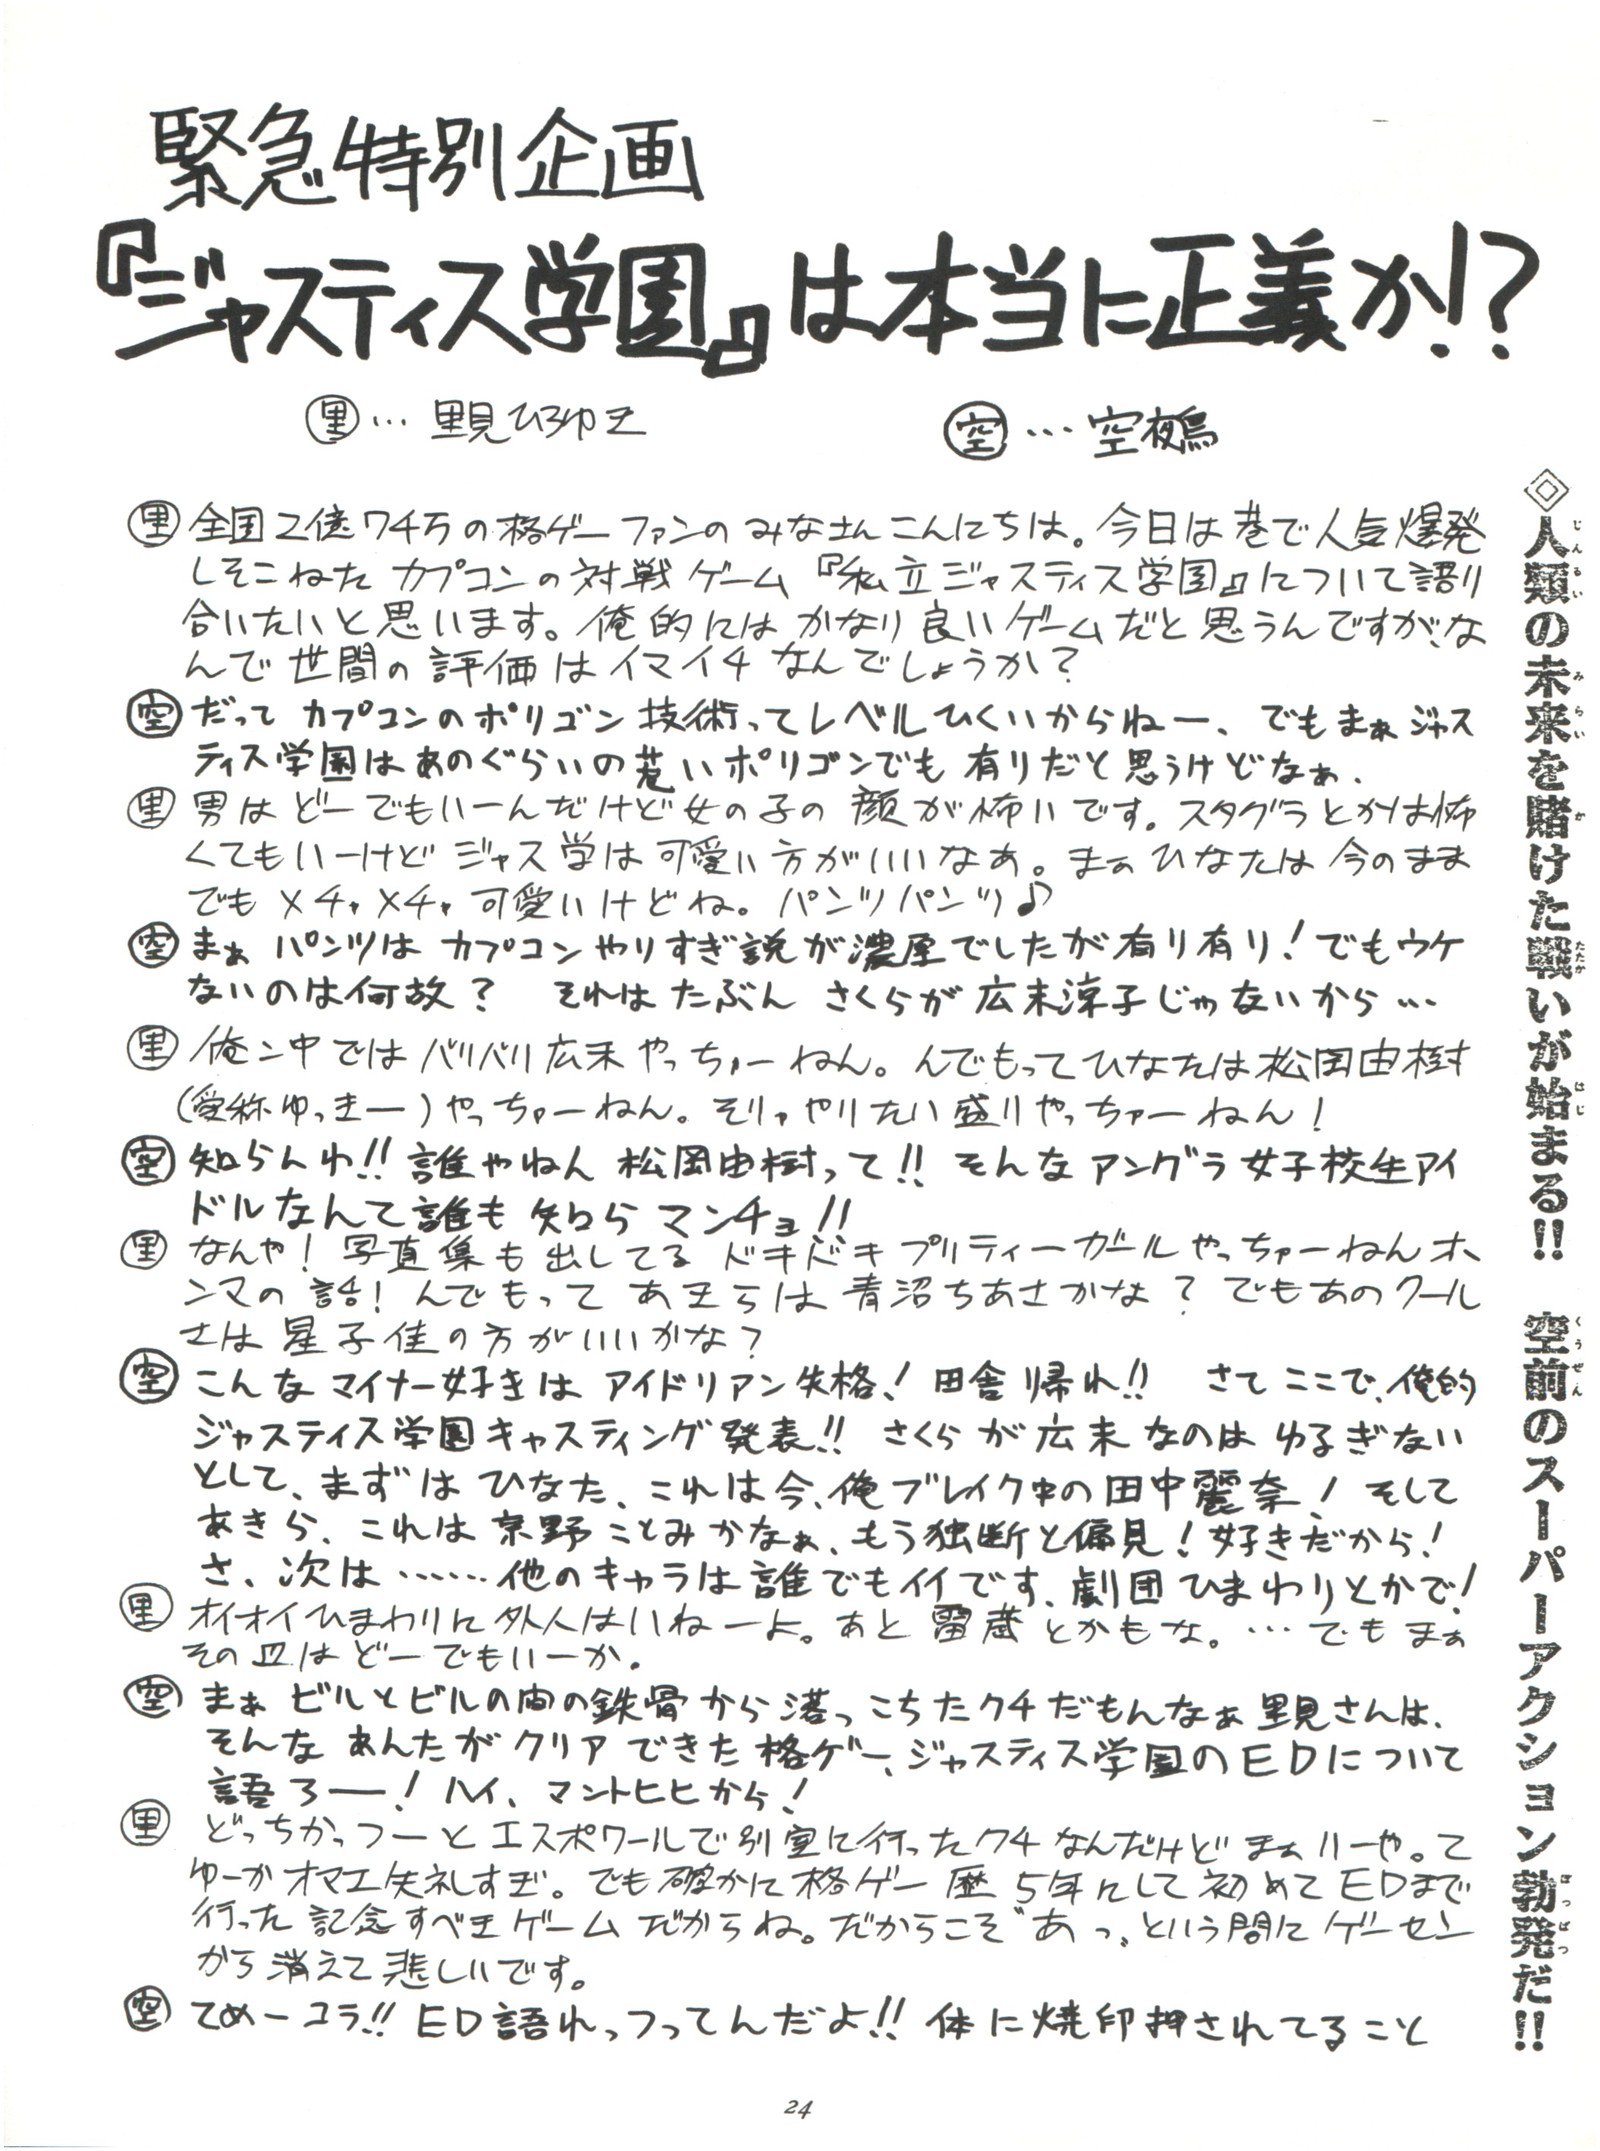 緊急特別企画
『ジャスティス学園』は本当に正義か!?
里…里見ひろゆき
空…空夜鳥
里 全国2億7千万の格ゲーファンのみなさんこんにちは。今日は巷で人気爆発
しそこねた カプコンの対戦ゲーム『私立ジャスティス学園』について語り
合いたいと思います。俺的にはかなり良いゲームだと思うんですが、な
んで世間の評価はイマイチなんでしょうか?
空 だって カプコンのポリゴン技術ってレベルひくいからねー、でもまぁジャス
ティス学園はあのぐらいの荒いポリゴンでも有りだと思うけどなぁ、
里 男はどーでもいーんだけど女の子の顔が怖いです。スタグラとかは怖
くてもいーけど ジャス学は可愛い方がいいなあ。まぁひなたは今のまま
でもメチャメチャ可愛いけどね。パンツパンツ♪
空 まぁ パンツはカプコンやりすぎ説が濃厚でしたが有り有り!でもウケ
ないのは何故? それはたぶん さくらが広末涼子じゃないから…
里 俺ン中ではバリバリ広末やっちゅーねん。んでもってひなたは松岡由樹
(愛称ゆっきー)やっちゅーねん。そりゃやりたい盛りやっちゅーねん!
空 知らんわ!!誰やねん 松岡由樹って!! そんなアングラ女子校生アイ
ドルなんて誰も知らマンチョ!!
里 なんや!写真集も出してるドキドキプリティーガールやっちゅーねんホ
ンマの話!んでもってあきらは青沼ちあさかな?でもあのクール
さは星子佳の方がいいかな?
空 こんなマイナー好きはアイドリアン失格!田舎帰れ!! さてここで、俺的
ジャスティス学園キャスティング発表!! さくらが広末なのはゆるぎない
として、まずはひなた、これは今、俺ブレイク中の田中麗奈!そして
あきら、これは京野ことみかなぁ、もう独断と偏見!好きだから!
さ、次は……他のキャラは誰でもイイです、劇団ひまわりとかで!
里 オイオイひまわりに外人はいねーよ。あと雷蔵とかもな。…でもまぁ
その辺はどーでもいーか。
空 まぁ ビルとビルの間の鉄骨から落っこちたクチだもんなぁ里見さんは、
そんな あんたがクリアできた格ゲー、ジャスティス学園のEDについて
語ろー!ハイ、マントヒヒから!
里 どっちかっつーとエスポワールで別室に行ったクチなんだけどまぁいーや。て
ゆーかオマエ失礼すぎ。でも確かに格ゲー歴5年にして初めてEDまで
行った記念すべきゲームだからね。だからこそ“あっ”という間にゲーセン
から消えて悲しいです。
空 てめーコラ!!ED語れっつってんだよ!!体に焼印押されてること
◈人類の未来を賭けた戦いが始まる!! 空前のスーパーアクション勃発だ!!
じんるい みらい か たたか はじ くうぜん ぼっぱつ
24